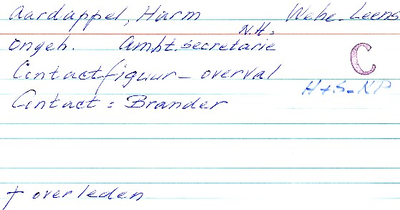 Aardappel, Harm Wehe-Leens
N.H.
Ongeh. Ambt. secretarie
Contactfiguur - overval C
H+S-KP
Contact: Brander
+ overleden